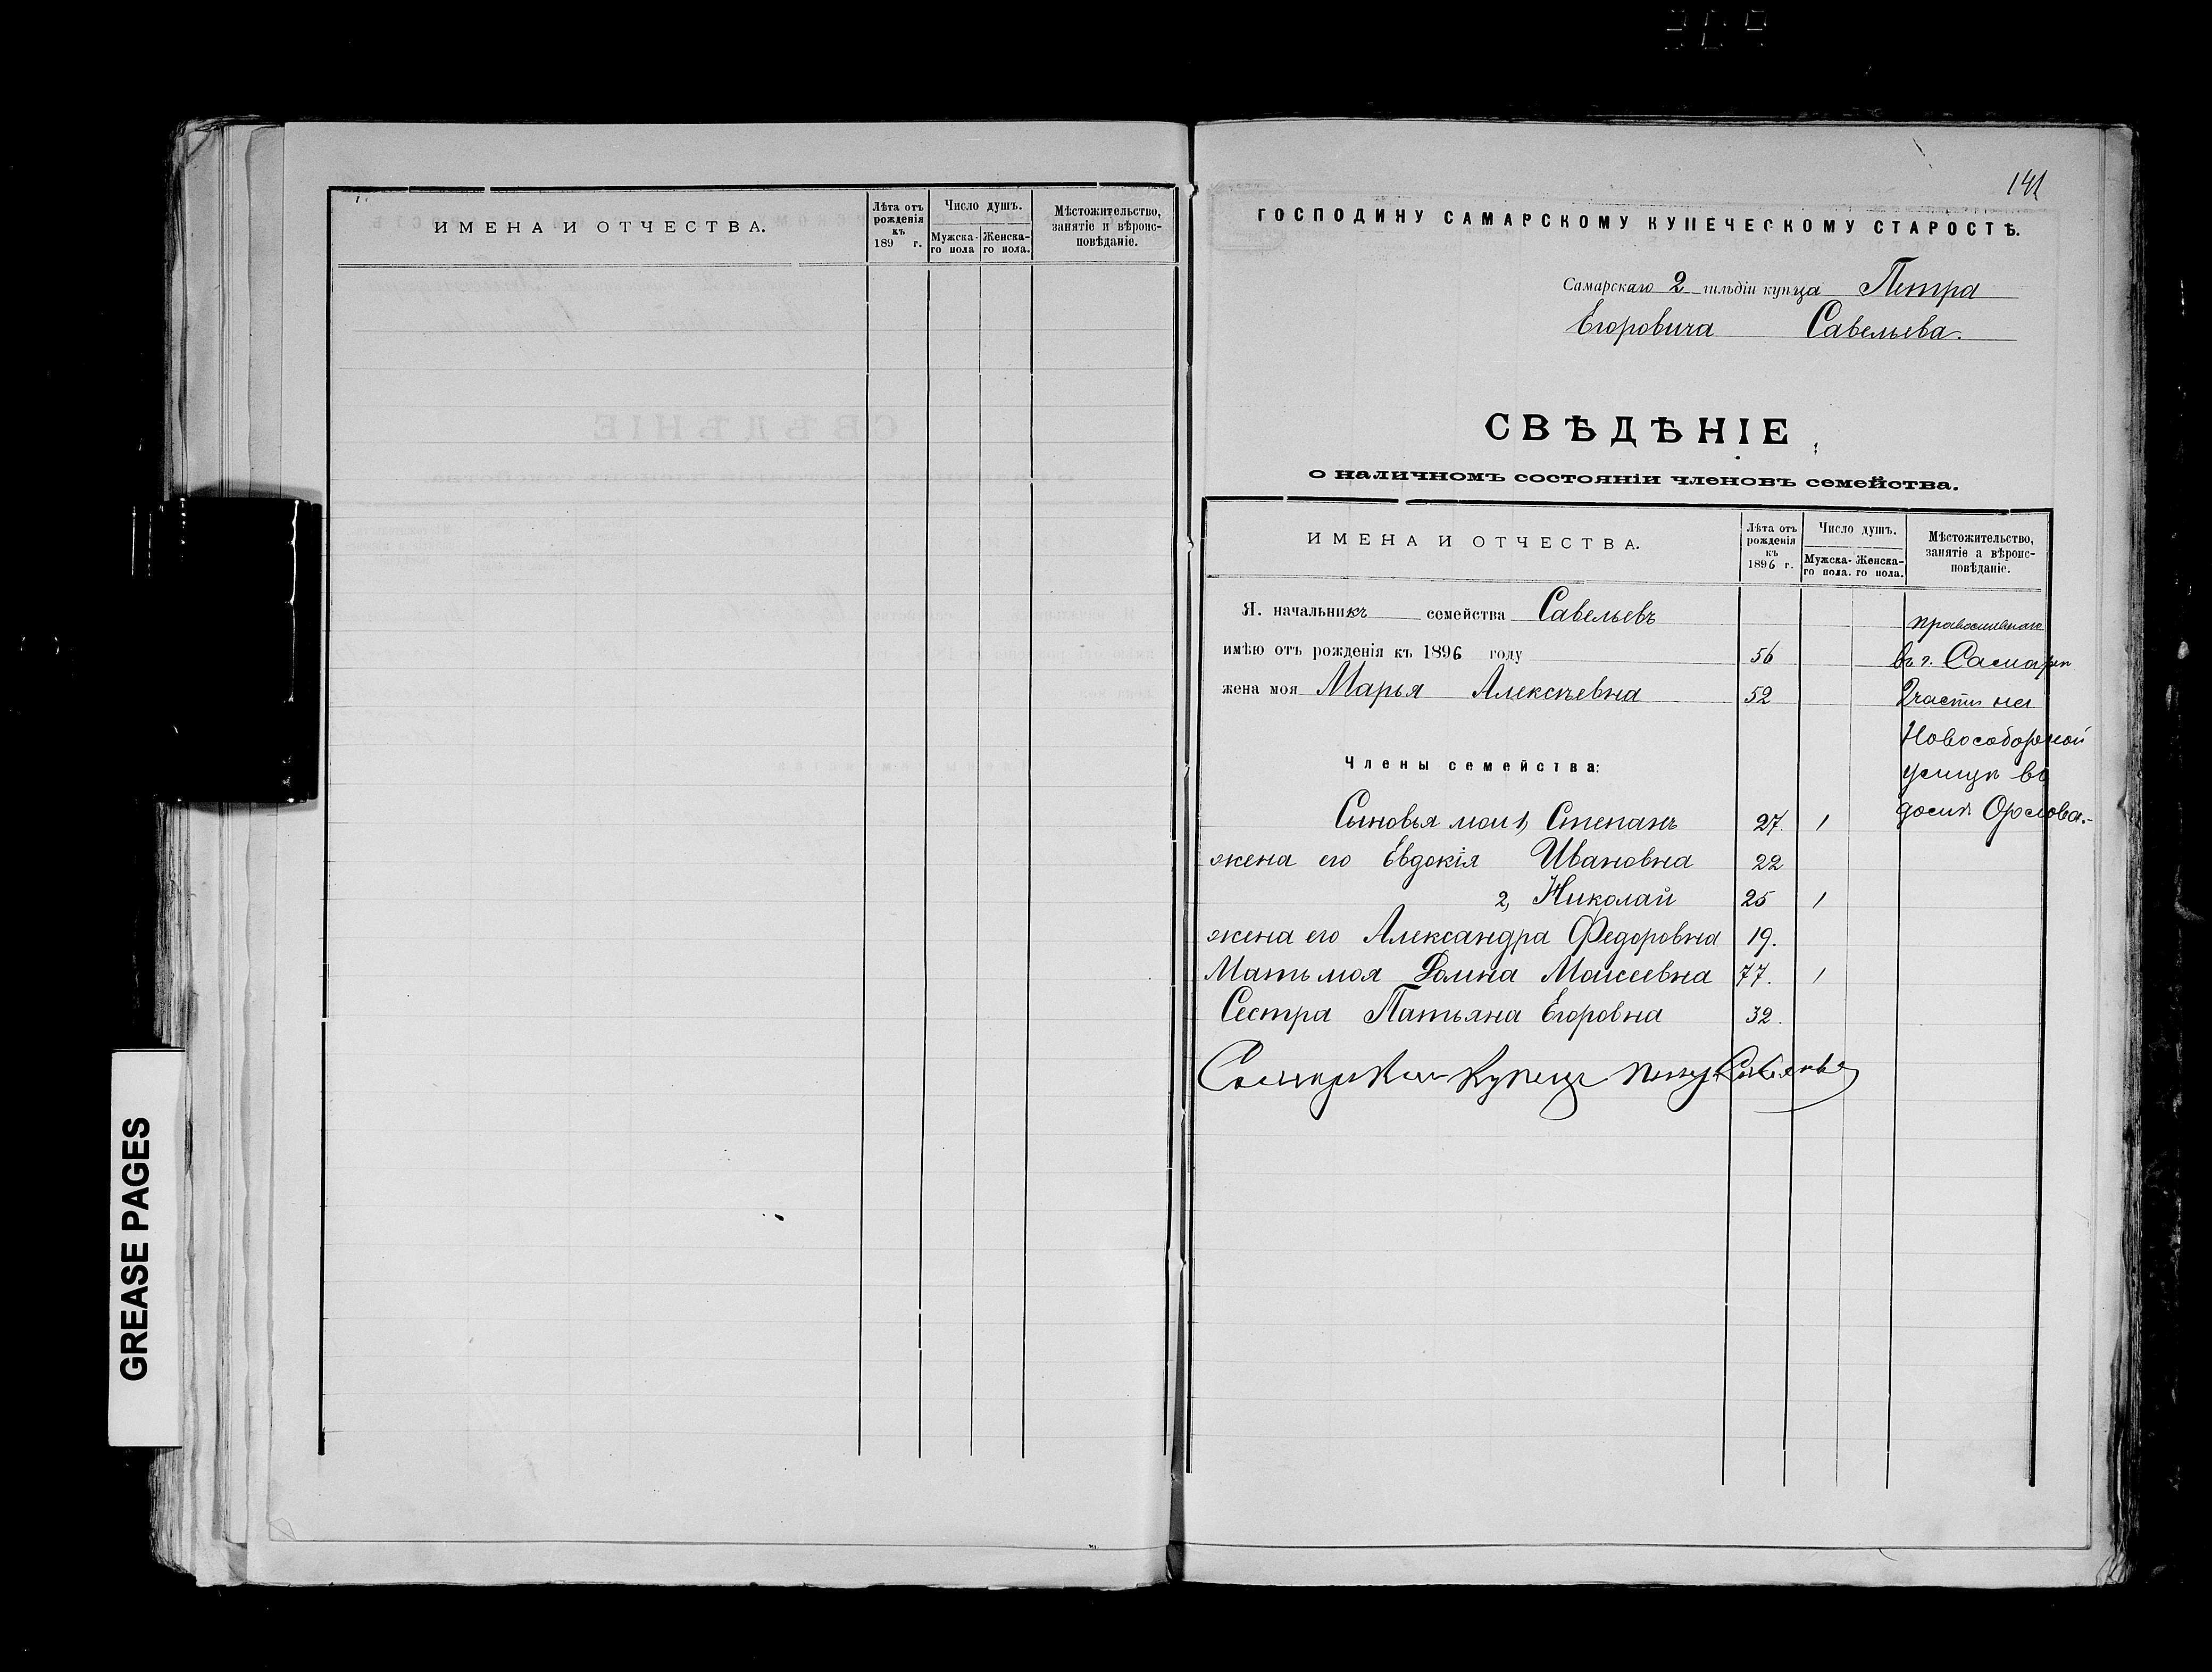 ИМЕНА И ОТЧЕСТВА.
Лѣта отъ рожденія къ 189 г.
Число душъ.
Мужска-го пола
Женска-го пола.
Мѣстожительство, занятіе и вѣроис-повѣданіе.
GREASE PAGES
141
ГОСПОДИНУ САМАРСКОМУ КУПЕЧЕСКОМУ СТАРОСТѢ.
Самарскаго 2 гильдіи купца Петра
Егоровича Савельева.
СВѢДѢНІЕ
о наличномъ состояніи членовъ семейства.
ИМЕНА И ОТЧЕСТВА.
Лѣта отъ рожденія къ 1896 г.
Число душъ.
Мужска-го пола.
Женска-го пола.
Мѣстожительство, занятіе а вѣроис-повѣданіе.
Я. начальникъ семейства Савельевъ
имѣю отъ рожденія къ 1896 году 56 въ г. Самарѣ
жена моя Марья Алексѣевна 52 2 части на
Новособорной
Члены семейства: улицѣ въ
домѣ Орлова.
Сыновья мои 1, Степанъ 27. 1
жена его Евдокія Ивановна 22
2, Николай 25 1
жена его Александра Федоровна 19.
Мать моя Домна Моисеевна 77. 1
Сестра Татьяна Егоровна 32.
Самарскій Купецъ Петръ Савельевъ